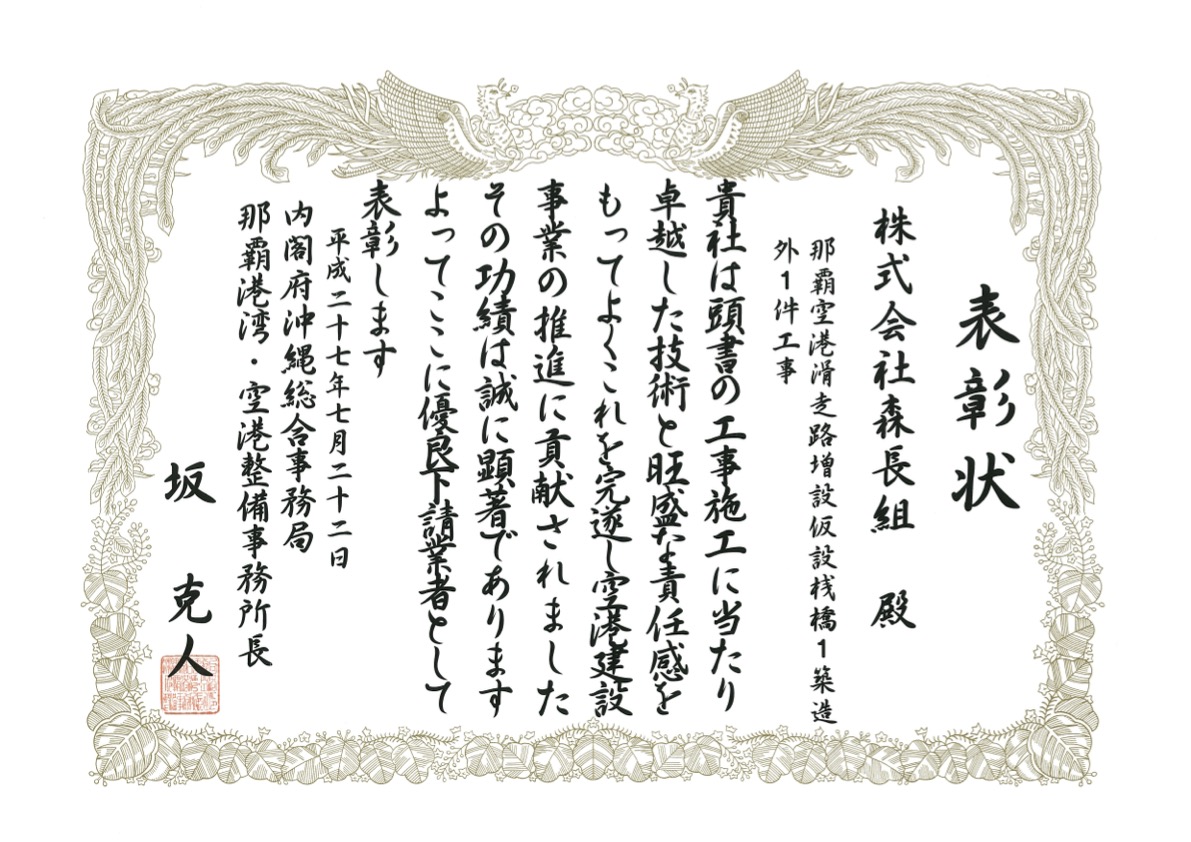 表彰状
株式会社森長組　殿
那覇空港滑走路増設仮設桟橋1築造
外1件工事
貴社は頭書の工事施工に当たり
卓越した技術と旺盛な責任感を
もってよくこれを完遂し空港建設
事業の推進に貢献されました
その功績は誠に顕著であります
よってここに優良下請業者として
表彰します
平成二十七年七月二十二日
内閣府沖縄総合事務局
那覇港湾・空港整備事務所長
坂　克人